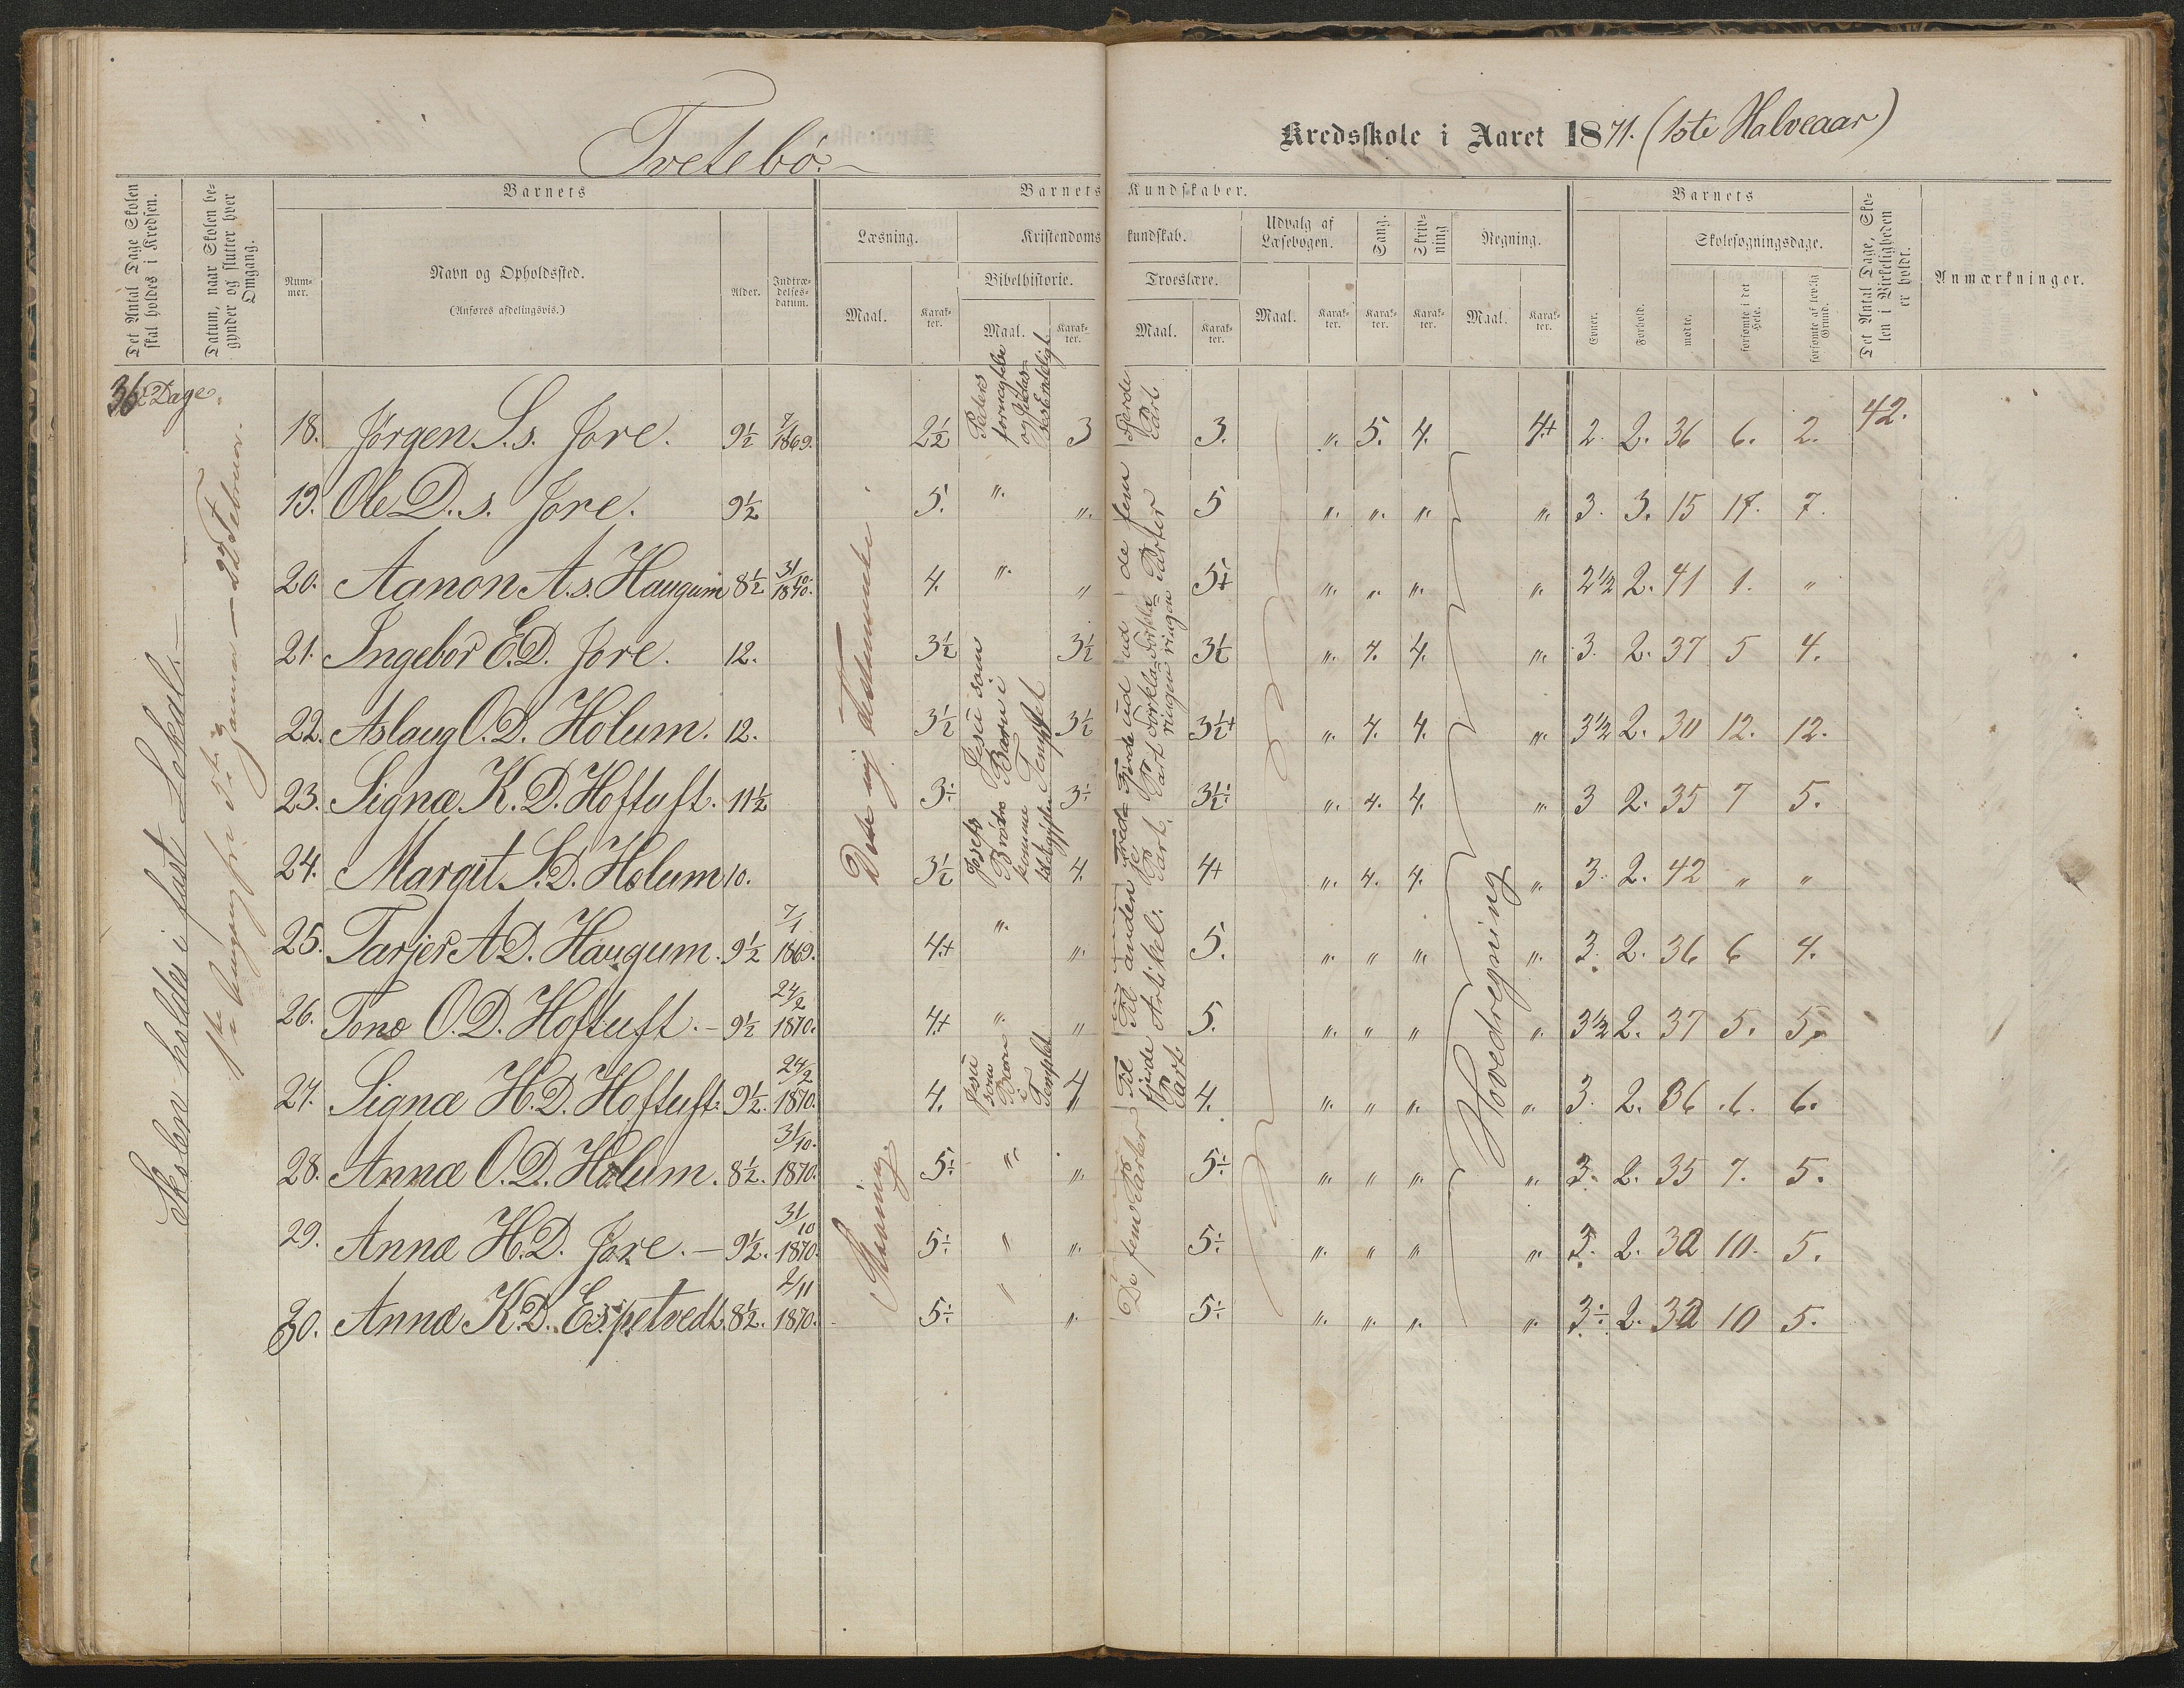 Tvetebø.
Kredsskole i Aaret 1871. (1ste Halveaar)
Det Antal Dage Skolen skal holdes i Kredsen.
Datum, naar Skolen begynder og slutter hver Omgang.
Barnets
Barnets Kundskaber.
Barnets
Det Antal Dage, Skolen i Virkeligheden er holdt.
Anmærkninger.
Nummer.
Navn og Opholdssted.
(Anføres afdelingsvis.)
Alder.
Indtrædelsesdatum.
Læsning.
Kristendomskundskab.
Udvalg af Læsebogen.
Sang.
Skrivning
Regning.
Evner.
Forhold.
Skolesøgningsdage.
Bibelhistorie.
Troeslære.
Maal.
Karakter.
Maal.
Karakter.
Maal.
Karakter.
Maal.
Karakter.
Karakter.
Karakter.
Maal.
Karakter.
mødte.
forsømte i det Hele.
forsømte af lovlig Grund.
36 Dage
Skolen holdes i fast Lokal.
1ste Omgang fra
Januar — 22 Februar.
18. Jørgen S.s. Jore. 9½ 7/1 1869. 2½ 3 3. „ 5. 4. 4+ 2. 2. 36 6. 2. 42.
19. Ole D.s. Jore. 9½ 5. „ „ 5 „ „ „ „ 3. 3. 15 17. 7.
20. Aanon A.s. Haugum 8½ 31/10 1870. 4. „ „ 5+ „ „ „ „ 2½ 2. 41 1. „
21. Ingebor E.D. Jore. 12. 3½ 3½ 3½ „ 4. 4. „ 3. 2. 37 5 4.
22. Aslaug O.D. Holum. 12. 3½ 3½ 3½+ „ 4. 4. „ 3½ 2. 30 12. 12.
23. Signæ K.D. Hoftuft. 11½ 3÷ 3÷ 3½÷ „ 4. 4. „ 3 2. 35 7 5.
24. Margit S.D. Holum 10. 3½ 4. 4+ „ 4. 4. „ 3. 2. 42 „ „
25. Tarjer A.D. Haugum. 9½ 7/1 1869. 4+ „ „ 5. „ „ „ „ 3. 2. 36 6 4.
26. Tone O.D. Hoftuft. — 9½ 24/2 1870. 4+ „ „ 5. „ „ „ „ 3½ 2. 37 5. 5.
27. Signæ H.D. Hoftuft. 9½. 24/2 1870. 4. 4 4. „ „ „ „ 3. 2. 36 6. 6.
28. Annæ O.D. Holum. 8½. 31/10. 1870. 5÷ „ „ 5÷ „ „ „ „ 3. 2. 35 7. 5.
29. Annæ H.D. Jore. — 9½. 31/10 1870. 5÷ „ „ 5÷ „ „ „ „ 3. 2. 32 10. 5.
30. Annæ K.D. Espetvedt. 8½. 2/11 1870. 5÷ „ „ 5÷ „ „ „ „ 3÷ 2. 32 10 5.
Det nij Testamente.
Stavning.
Peters fornægtelse og Judas
Jesu som Barn i Templet
Josefs Brødre komme
Jesu som Barn i Templet
Fjerde Part
de fem Parter
Til anden Artikel.
Til fjerde Part.
De fem Parter
Hovedregning